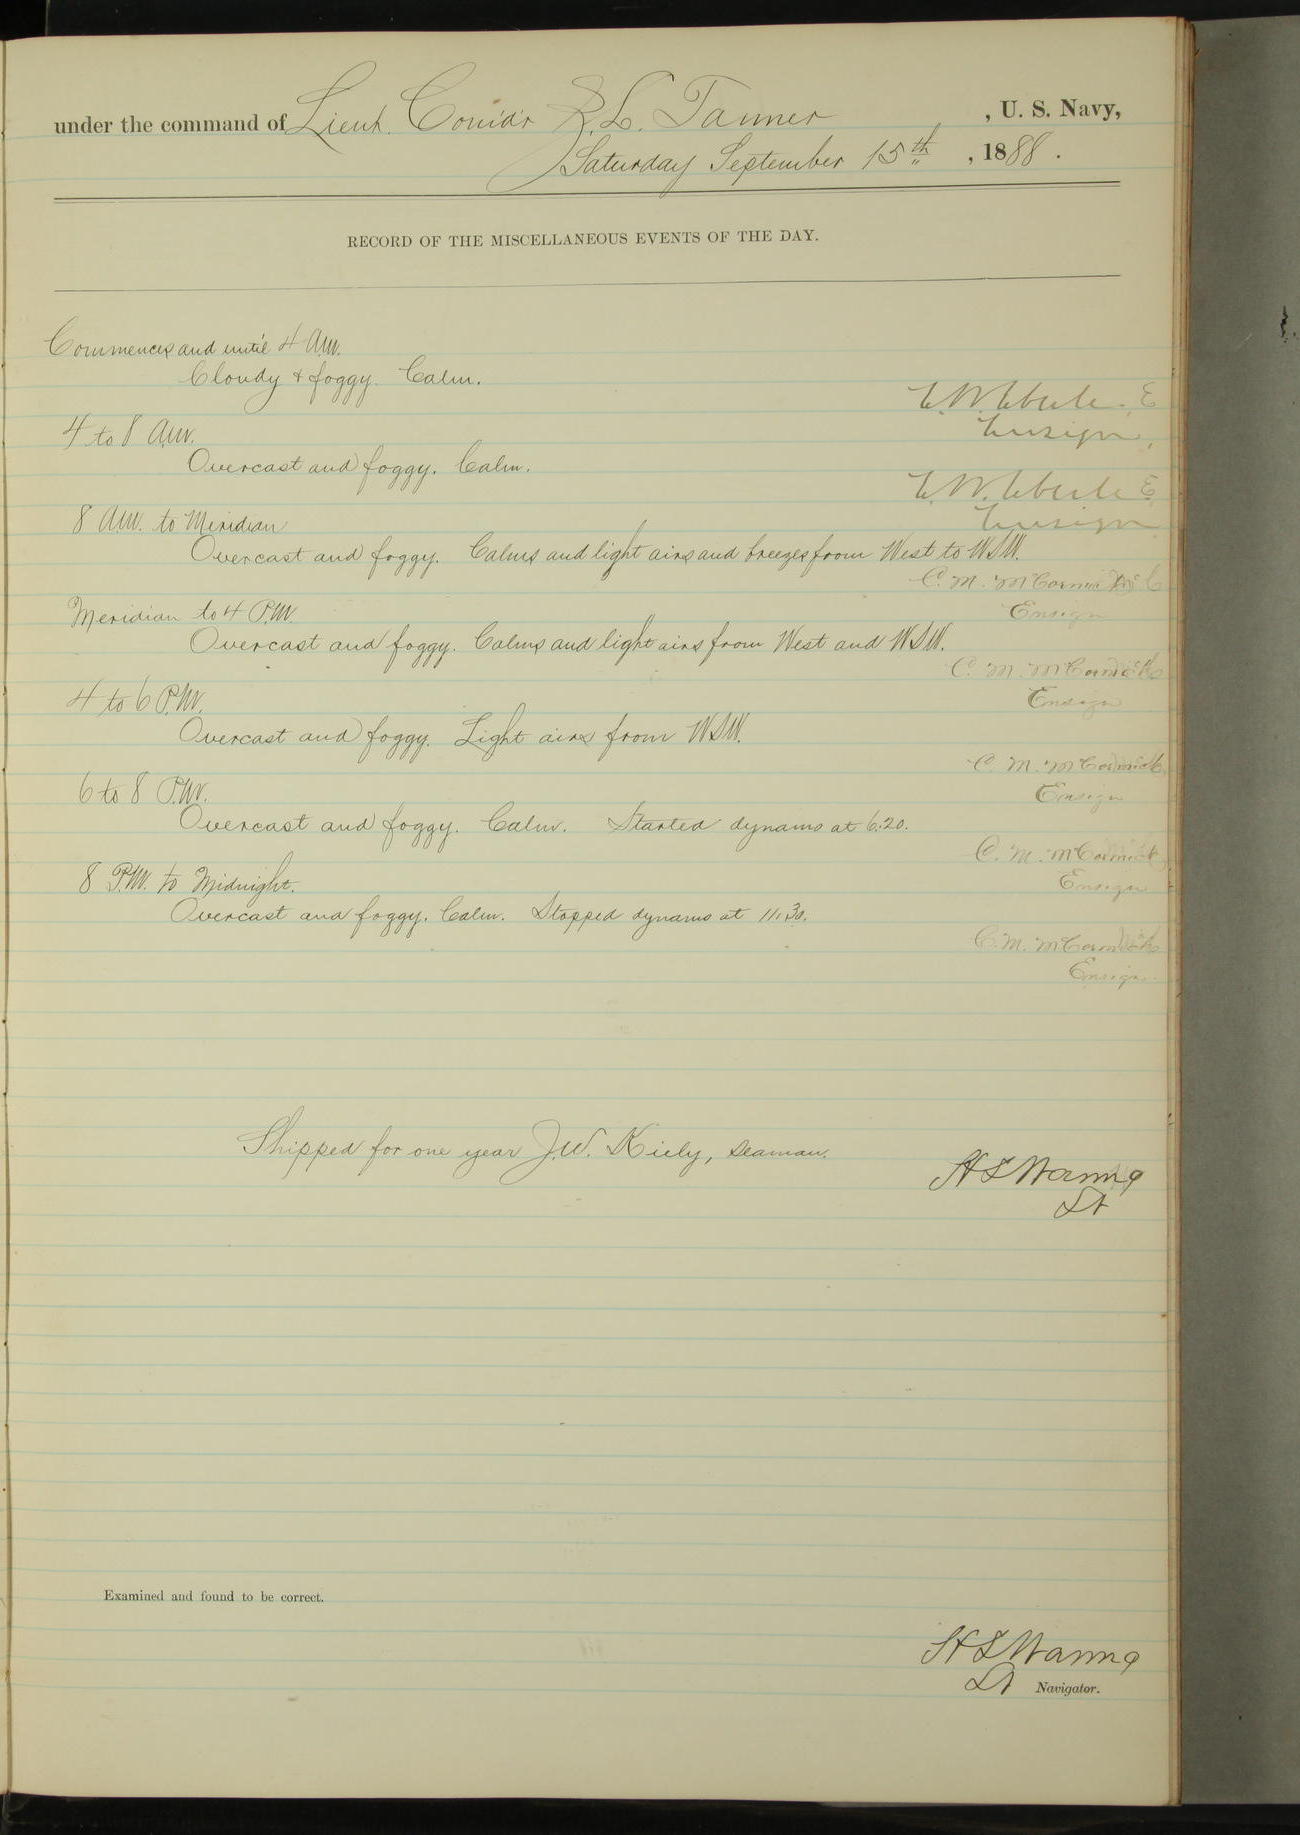 under the command of Lieut. Comd'r Z. L. Tanner, U. S. Navy,
Saturday September 15th, 1888.
RECORD OF THE MISCELLANEOUS EVENTS OF THE DAY.
Commences and until 4 A.M.
Cloudy & foggy. Calm.
E. W. Eberle
Ensign,
4 to 8 A.M.
Overcast and foggy. Calm.
E. W. Eberle
Ensign
8 A.M. to Meridian
Overcast and foggy. Calms and light airs and breezes from West to WSW.
C. M. McCormick
Ensign
Meridian to 4 P.M.
Overcast and foggy. Calms and light airs from West and WSW.
C. M. McCormick
Ensign
4 to 6 P.M.
Overcast and foggy. Light airs from WSW.
C. M. McCormick
Ensign
6 to 8 P.M.
Overcast and foggy. Calm. Started dynamo at 6:20.
C. M. McCormick
Ensign
8 P.M. to Midnight.
Overcast and foggy. Calm. Stopped dynamo at 11:30.
C. M. McCormick
Ensign.
Shipped for one year J.W. Kiely, seaman.
H S Waring
Lt
Examined and found to be correct.
H S Waring
Lt Navigator.